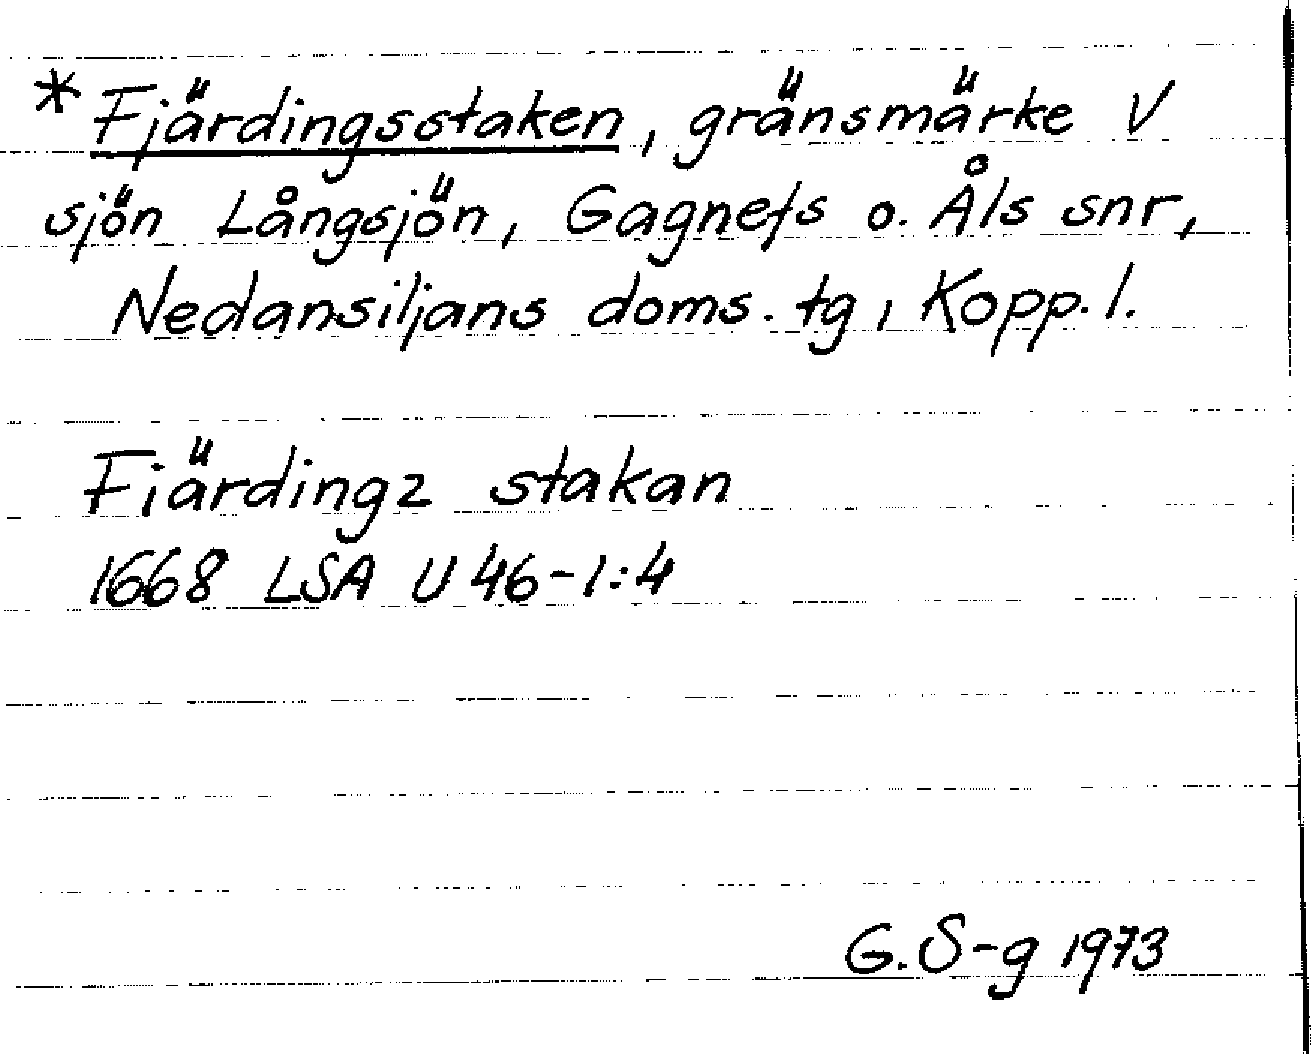 * Fjärdingsstaken, gränsmärke V
sjön Långsjön, Gagnefs o. Åls snr,
Nedansiljans doms. tg, Kopp. l.
Fiärdingz stakan
1668 LSA U 46-1:4
G. S-g 1973